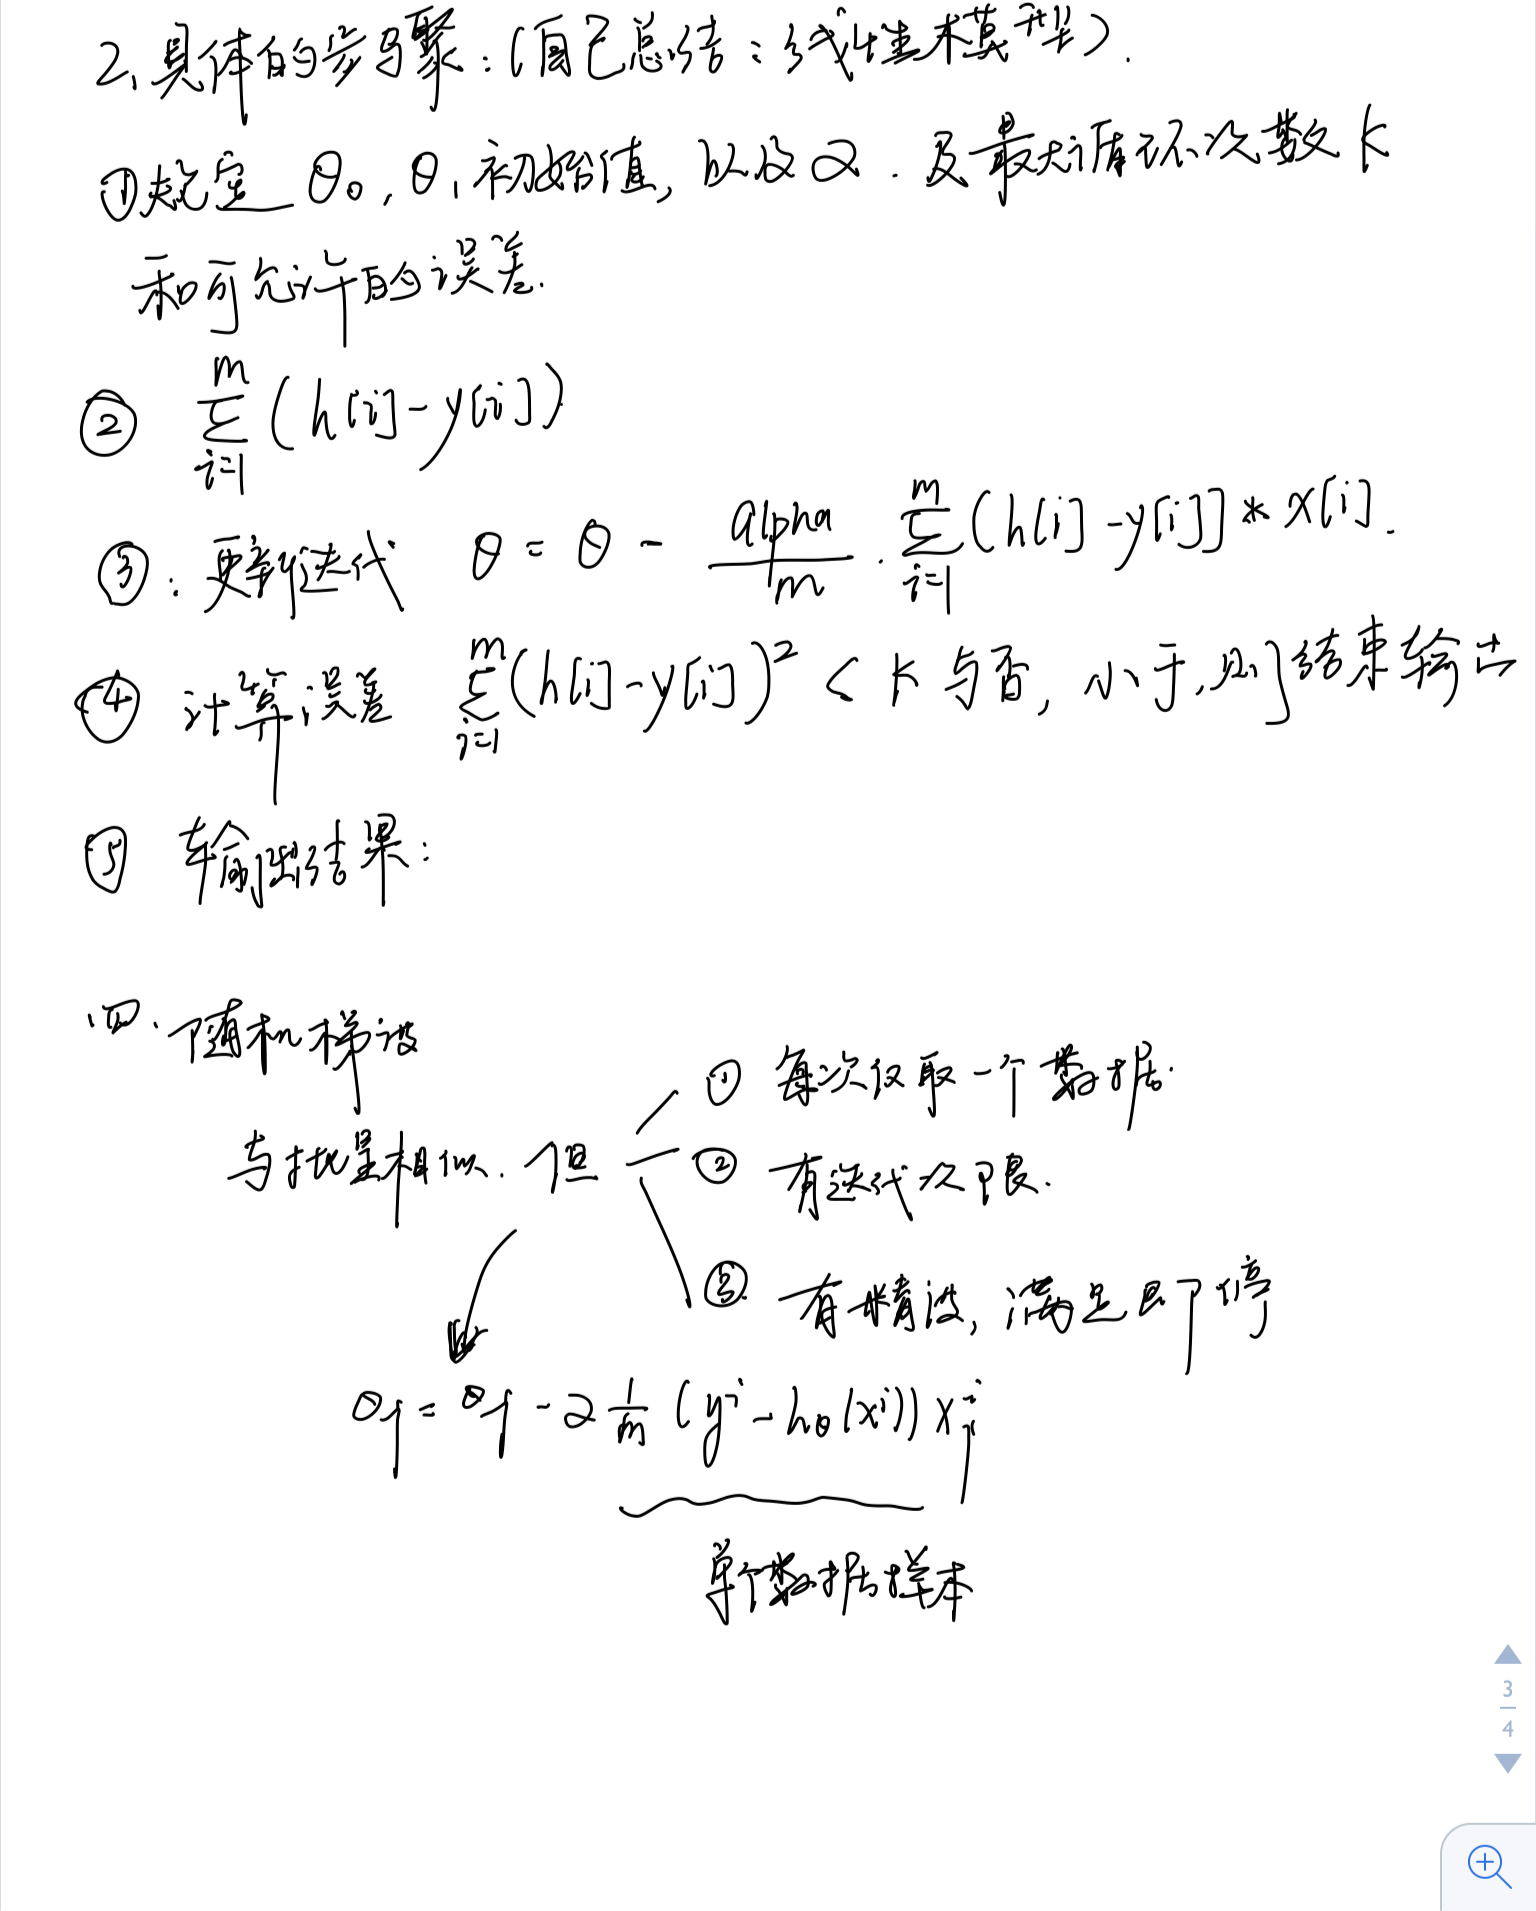 2、具体的步骤：(自己总结：线性模型).
①规定 θ₀, θ₁初始值, 以及α. 及最大循环次数 k
和可允许的误差.
② \sum_{i=1}^{m} (h[i]-y[i])
③: 更新迭代 θ = θ - \frac{alpha}{m} \cdot \sum_{i=1}^{m} (h[i]-y[i]] * x[i].
④ 计算误差 \sum_{i=1}^{m} (h[i]-y[i])^2 < k 与否, 小于, 则结束输出
⑤ 输出结果:
四、随机梯度
与批量相似. 但
① 每次仅取一个数据.
② 有迭代次限.
③. 有精度, 满足即停
θj = θj - α \frac{1}{m} (y^i - h_θ(x^i)) x_j^i
单个数据样本
3
4